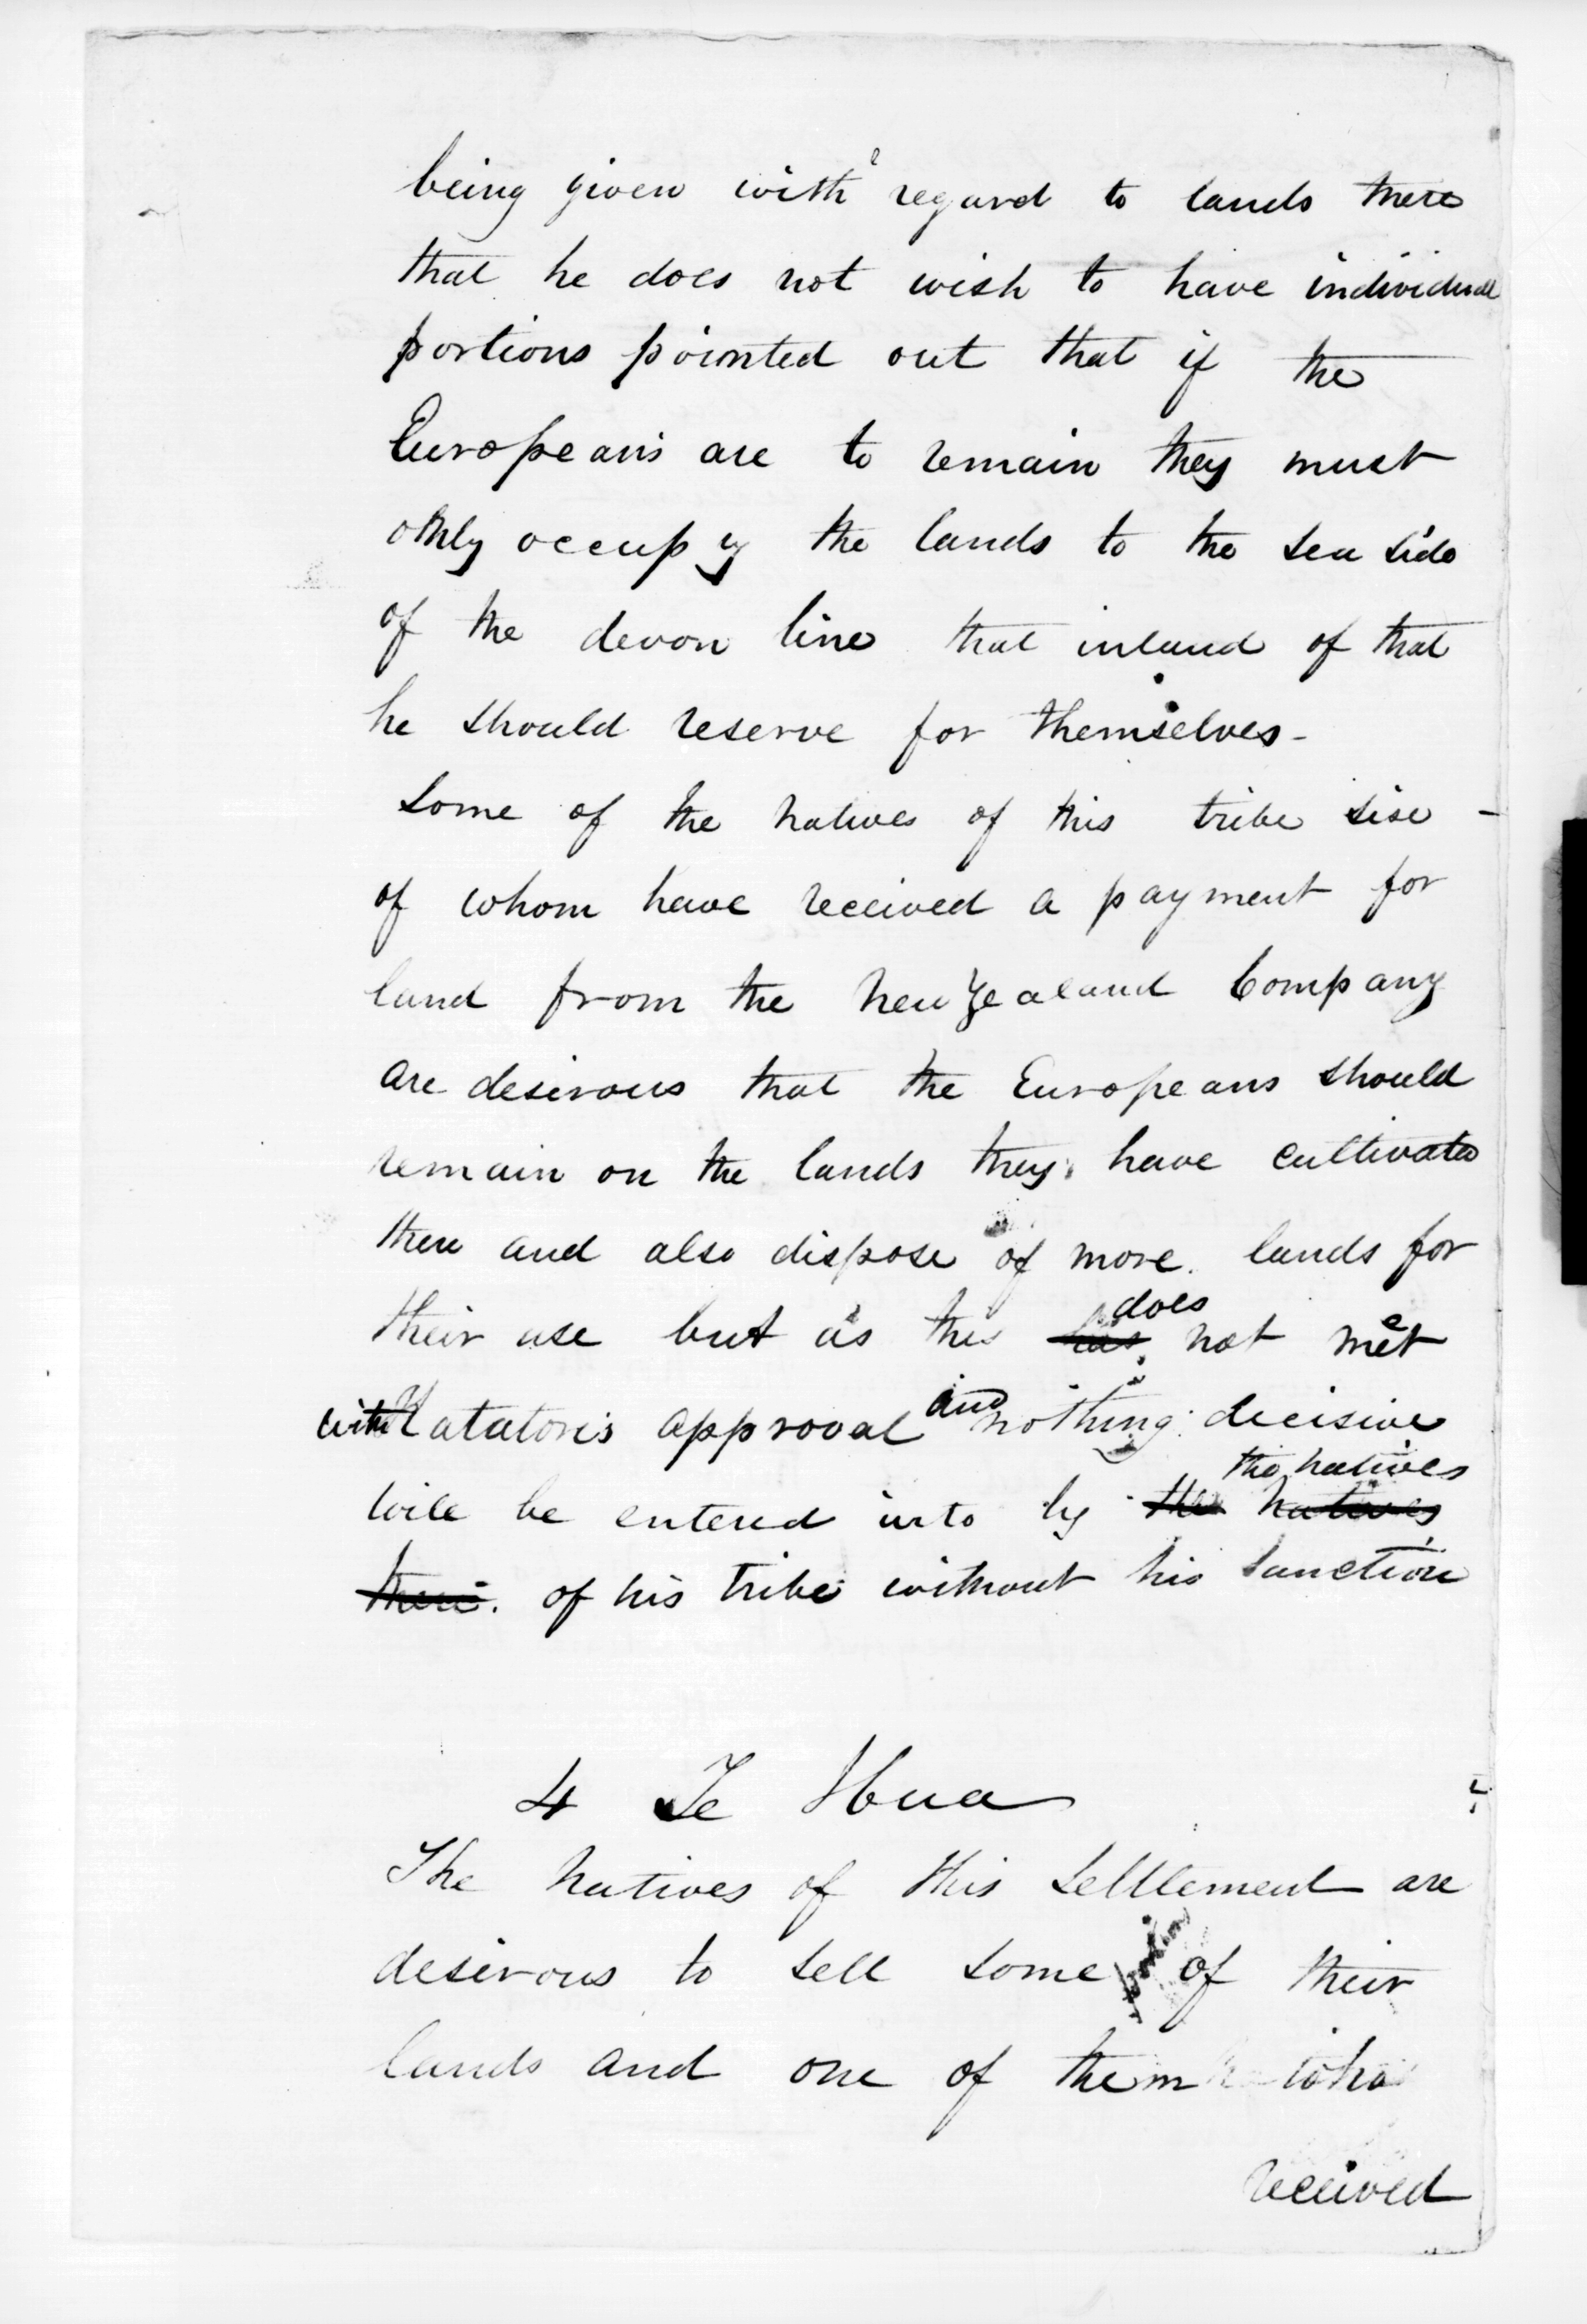 being given with regard to lands there
that he does not wish to have individual
portions pointed out that if the
Europeans are to remain they must
only occupy the lands to the sea side
of the devon line that inland of that
he should reserve for themselves -
Some of the natives of this tribe sise -
of whom have received a payment for
land from the New Zealand Company
are desirous that the Europeans should
remain on the lands they have cultivated
there and also dispose of more lands for
their use but as this has does not meet
with Katatori's approval and nothing decisive
will be entered into by the natives the natives
there of his tribe without his sanction
4 Te Hua
The natives of this Settlement are
desirous to sell some of their
lands and one of them who
received